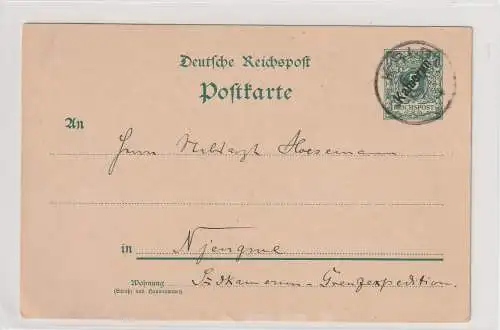 Deutsche Reichspost
Postkarte
Kamerun
REICHSPOST
An
Herrn Hoesemann
in Njengue
Wohnung
(Straße und Hausnummer)
Südkamerun-Grenzexpedition.